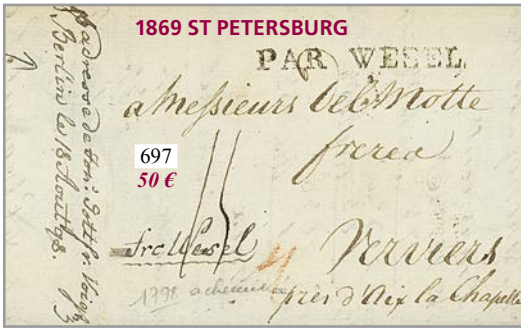 1869 ST PETERSBURG
PAR WESEL
a Messieurs Del Motte
freres
697
50 €
frc Wesel
Verviers
près d'Aix la Chapelle
1798 acheminée
l'adresse de Mons: Gottfr: Voigt
Berlin le 18 Aout 98.